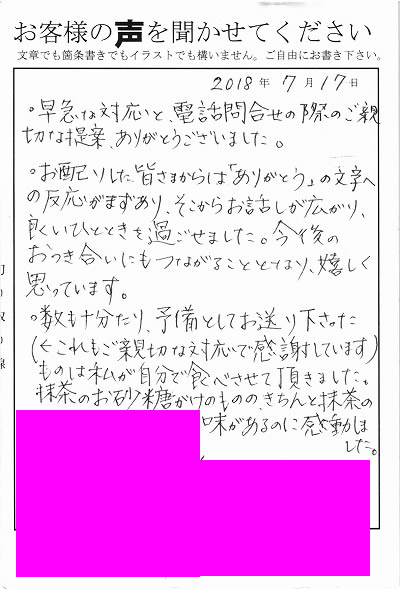 お客様の声を聞かせてください
文章でも箇条書きでもイラストでも構いません。ご自由にお書き下さい。
2018年 7月17日
・早急な対応と、電話問合せの際のご親
切な提案、ありがとうございました。
・お配りした皆さまからは「ありがとう」の文字へ
の反応がまずあり、そこからお話しが広がり、
良いひとときを過ごせました。今後の
おつき合いにもつながることとなり、嬉しく
思っています。
・数も十分たり、予備としてお送り下さった
(←これもご親切な対応で感謝しています)
ものは私が自分で食べさせて頂きました。
抹茶のお砂糖がけのものの、きちんと抹茶の
味があるのに感動しま
した。